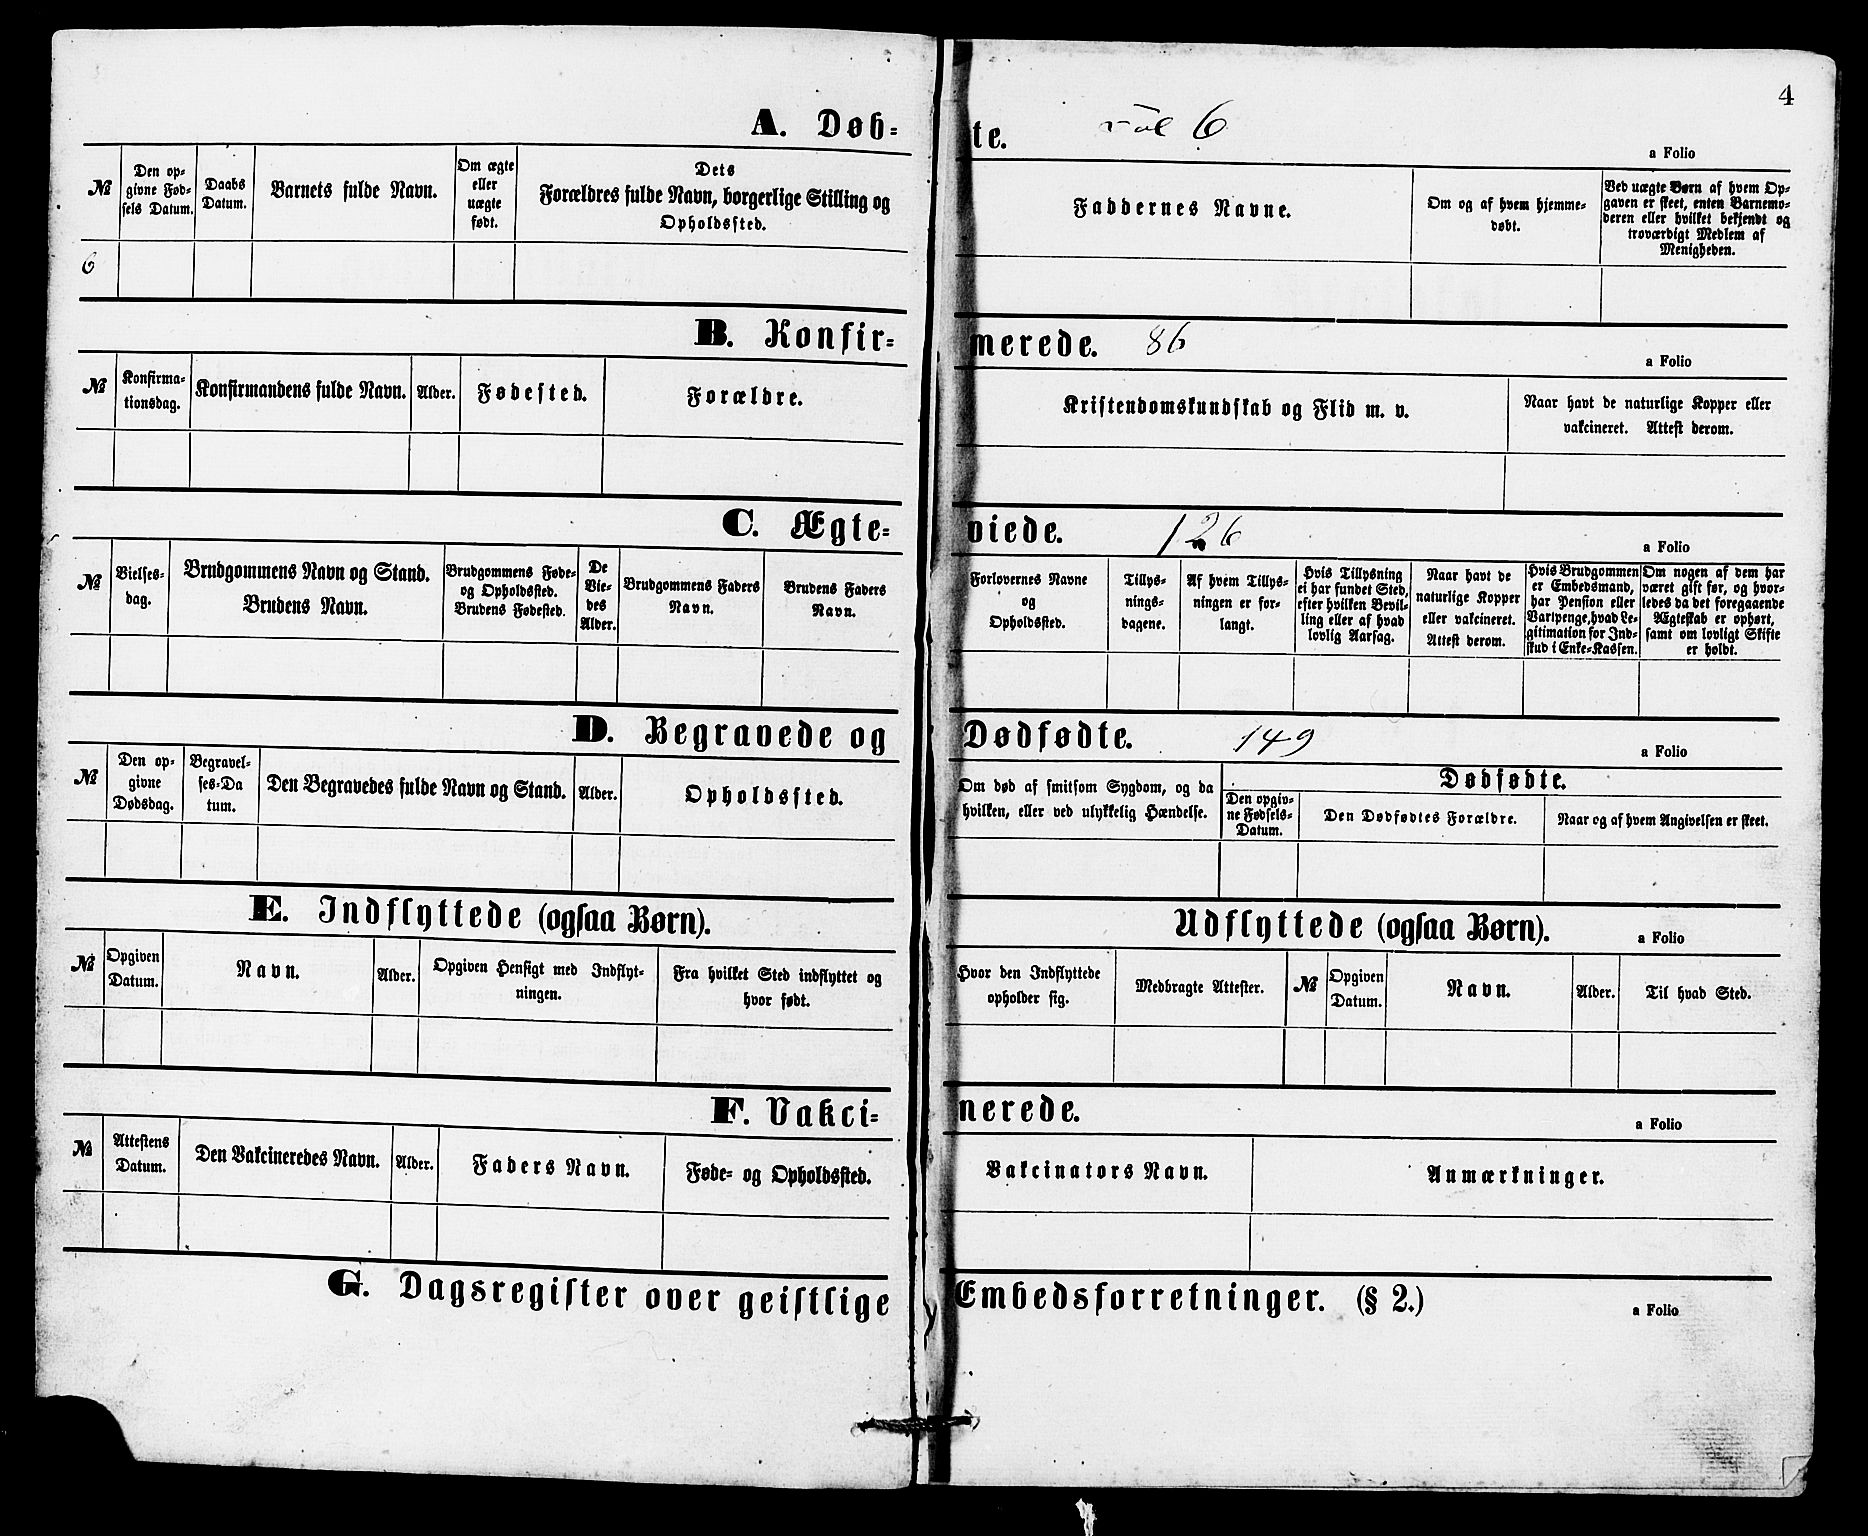 4
A. Døb-te. 6
a Folio
№ | Den opgivne Fødsels Datum. | Daabs Datum. | Barnets fulde Navn. | Om ægte eller uægte født. | Dets Forældres fulde Navn, borgerlige Stilling og Opholdssted. | Faddernes Navne. | Om og af hvem hjemmedøbt. | Ved uægte Børn af hvem Opgaven er skeet, enten Barnemoderen eller hvilket bekjendt og troværdigt Medlem af Menigheden.
6
B. Konfir-merede. 86
a Folio
№ | Konfirmationsdag. | Konfirmandens fulde Navn. | Alder. | Fødested. | Forældre. | Kristendomskundskab og Flid m. v. | Naar havt de naturlige Kopper eller vakcineret. Attest derom.
C. Ægte-viede. 126
a Folio
№ | Vielses-dag. | Brudgommens Navn og Stand. Brudens Navn. | Brudgommens Føde- og Opholdssted. Brudens Fødested. | De Vie-des Alder. | Brudgommens Faders Navn. | Brudens Faders Navn. | Forlovernes Navne og Opholdssted. | Tillys-nings-dagene. | Af hvem Tillys-ningen er for-langt. | Hvis Tillysning ei har fundet Sted, efter hvilken Bevil-ling eller af hvad lovlig Aarsag. | Naar havt de naturlige Kopper eller vakcineret. Attest derom. | Hvis Brudgommen er Embedsmand, har Pension eller Vartpenge, hvad Le-gitimation for Ind-skud i Enke-Kassen. | Om nogen af dem har været gift før, og hvor-ledes da det foregaaende Ægteskab er ophørt, samt om lovligt Skifte er holdt.
D. Begravede og Dødfødte. 149
a Folio
№ | Den op-givne Dødsdag. | Begravel-ses-Da tum. | Den Begravedes fulde Navn og Stand. | Alder. | Opholdssted. | Om død af smitsom Sygdom, og da hvilken, eller ved ulykkelig Hændelse. | Dødfødte. | Den opgiv-ne Fødsels-Datum. | Den Dødfødtes Forældre. | Naar og af hvem Angivelsen er skeet.
E. Indflyttede (ogsaa Børn). Udflyttede (ogsaa Børn).
a Folio
№ | Opgiven Datum. | Navn. | Alder. | Opgiven Hensigt med Indflyt-ningen. | Fra hvilket Sted indflyttet og hvor født. | Hvor den Indflyttede opholder sig. | Medbragte Attester. | № | Opgiven Datum. | Navn. | Alder. | Til hvad Sted.
F. Vakci-nerede.
a Folio
№ | Attestens Datum. | Den Vakcineredes Navn. | Alder. | Faders Navn. | Føde- og Opholdssted. | Vakcinators Navn. | Anmærkninger.
G. Dagsregister over geistlige Embedsforretninger. (§ 2.)
a Folio